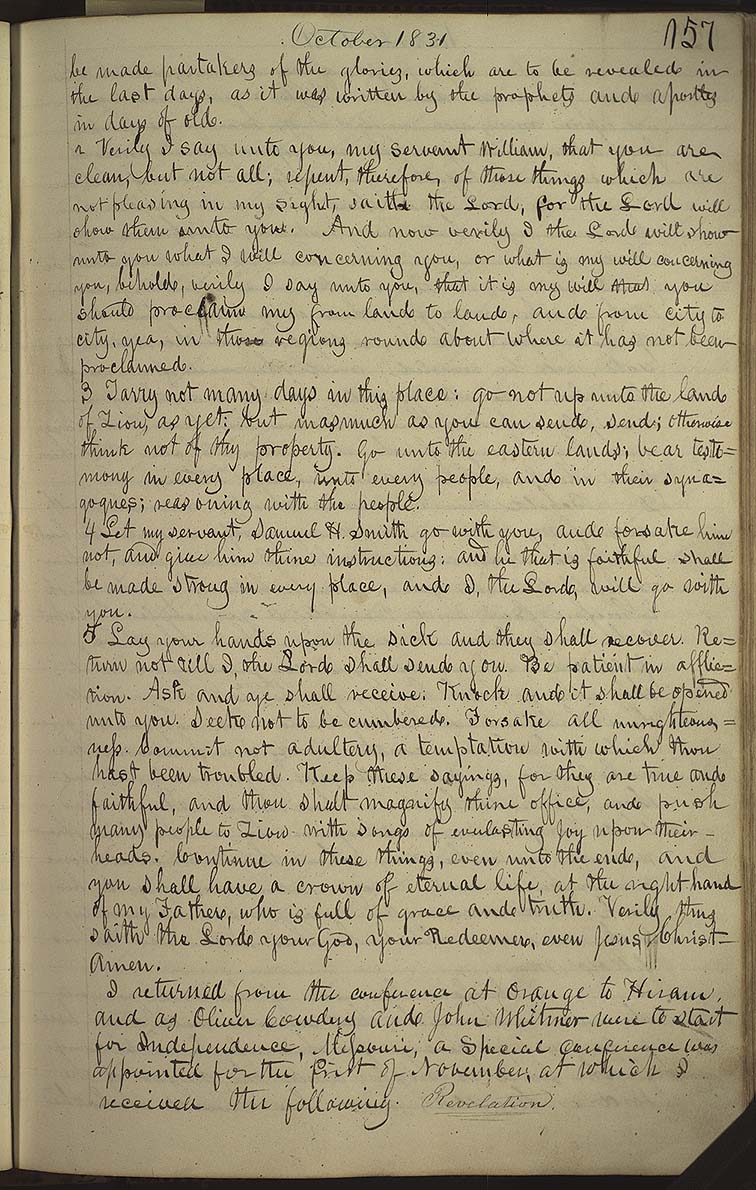 October 1831
157
be made partakers of the glories, which are to be revealed in
the last days, as it was written by the prophets and apostles
in days of old.
2 Verily I say unto you, my servant William, that you are
clean, but not all; repent, therefore, of those things which are
not pleasing in my sight, saith the Lord, for the Lord will
show them unto you. And now verily I the Lord will show
unto you what I will concerning you, or what is my will concerning
you, behold, verily I say unto you, that it is my will that you
should proclaim my from land to land, and from city to
city, yea, in those regions round about where it has not been
proclaimed.
3 Tarry not many days in this place: go not up unto the land
of Zion, as yet; but inasmuch as you can send, send; otherwise
think not of thy property. Go unto the eastern lands; bear testi=
mony in every place, unto every people, and in their syna=
gogues; reasoning with the people.
4 Let my servant, Samuel H. Smith go with you, and forsake him
not, and give him thine instructions: and he that is faithful shall
be made strong in every place, and I, the Lord, will go with
you.
5 Lay your hands upon the sick and they shall recover. Re=
turn not till I, the Lord shall send you. Be patient in afflic=
tion. Ask and ye shall receive: Knock and it shall be opened
unto you. Seek not to be cumbered. Forsake all unrighteous=
ness. Commit not adultery, a temptation with which thou
hast been troubled. Keep these sayings, for they are true and
faithful, and thou shalt magnify thine office, and push
many people to Zion with songs of everlasting joy upon their-
heads. Continue in these things, even unto the end, and
you shall have a crown of eternal life, at the right hand
of my Father, who is full of grace and truth. Verily thus
saith the Lord your God, your Redeemer, even Jesus Christ-
Amen.
I returned from the conference at Orange to Hiram,
and as Oliver Cowdery and John Whitmer were to start
for Independence, Missouri, a Special conference was
appointed for the first of November, at which I
received the following. Revelation.